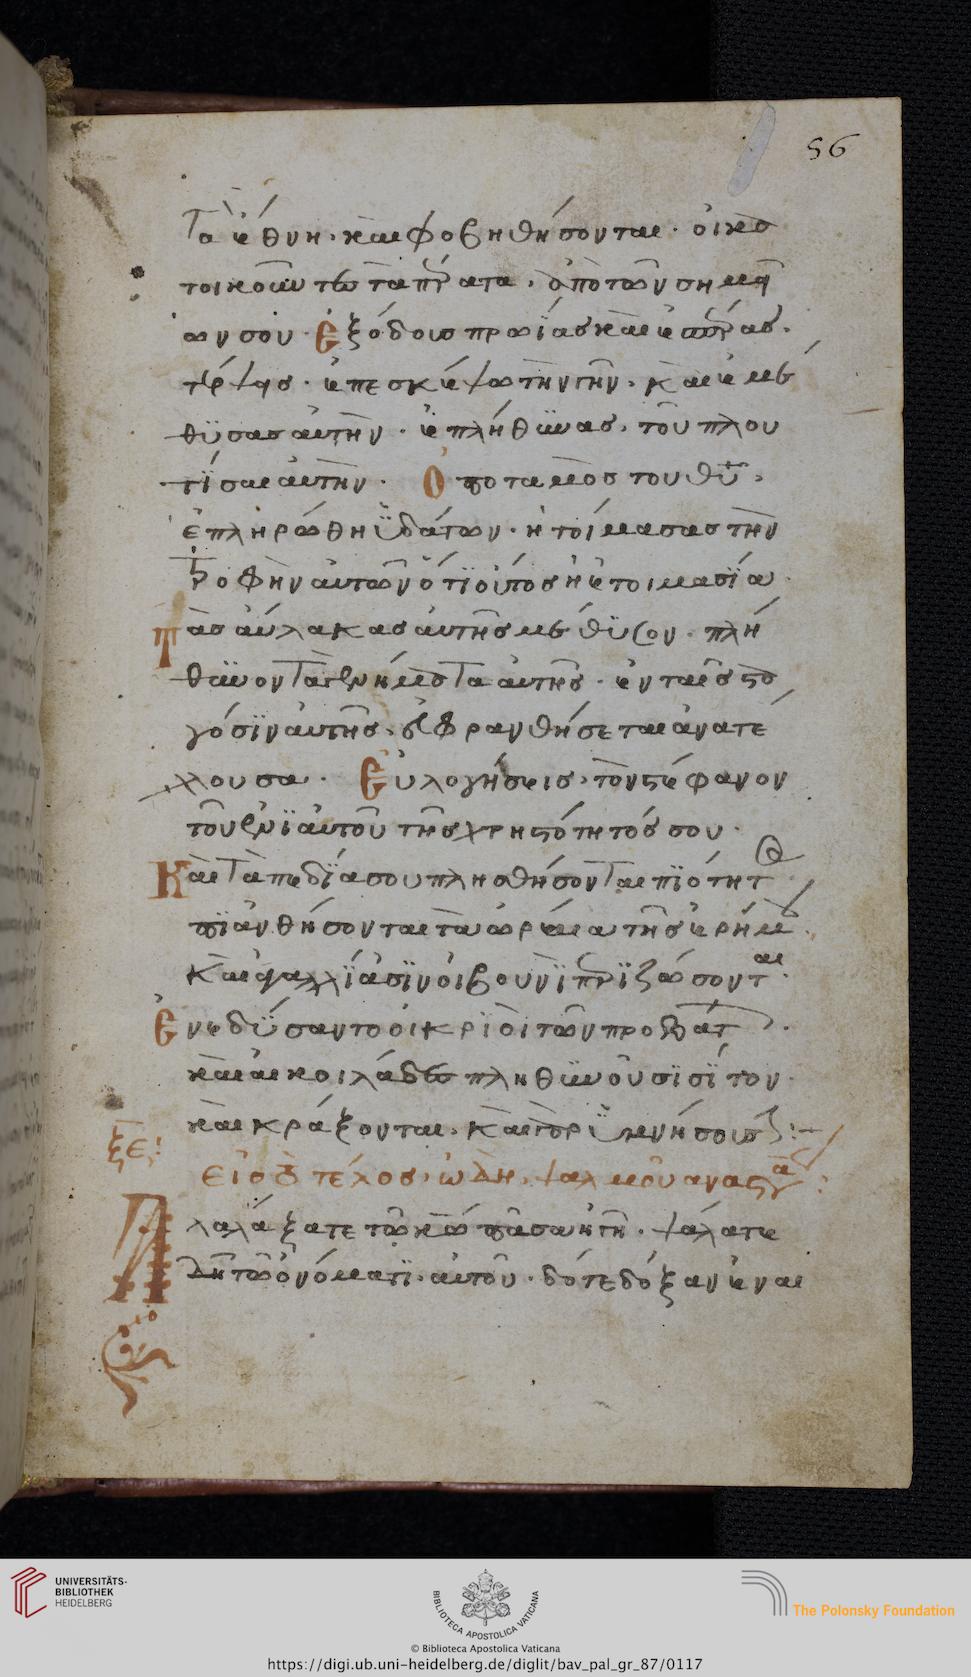 56
Τὰ ἔθνη· καὶ φοβηθήσονται· οἱ κα
τοικοῦντες τὰ πέρατα· ἀπὸ τῶν σημεί
ων σου· Ἐξόδους πρωΐας καὶ ἑσπέρας·
τέρψης· ἐπεσκέψω τὴν γῆν· καὶ ἐμέ
θϋσας αὐτὴν· ἐπλήθϋνας· τοῦ πλου
τΐσαι αὐτὴν· Ὁ ποταμὸς τοῦ θυ·
ἐπληρώθη ϋδάτων· ἡτοίμασας τὴν
τροφὴν αὐτῶν ὅτϊ οὕτος ἡ ἐτοιμασΐα·
Τὰς αὔλακας αὐτῆς μέθϋσον· πλή
θϋνον τὰ γενήματα αὐτῆς· ἐν ταῖς στα
γόσϊν αὐτῆς· εὐφρανθήσεται ἀνατέ
λλουσα· Εὐλογήσεις· τὸν στέφανον
τοῦ ἐνϊαὐτοῦ τῆς χρηστότητός σου·
Καὶ τὰ πεδΐα σου πλησθήσονται πϊότητος
πϊανθήσονται τὰ ὡραῖα τῆς ἐρήμου·
Καὶ ἀγαλλΐασϊν οἱ βουνοῒ περϊζώσονται·
Ἐνεδΰσαντο οἱ κρϊοὶ τῶν προβάτων·
καὶ αἱ κοιλάδες πληθϋνοῦσϊ σΐτον·
καὶ κράξονται· καὶ γὰρ ϋμνήσουσι:
ξε:
εἰς τὸ τέλος· ὠδὴ· ψαλμοῦ αναστά:
Ἀλαλάξατε τῶ κω πᾶσα ἡ γῆ· ψάλατε
δὴ τῶ ὀνόματϊ· αὐτοῦ· δότε δόξαν ἐν αι
UNIVERSITÄTS-
BIBLIOTHEK
HEIDELBERG
BIBLIOTECA APOSTOLICA VATICANA
The Polonsky Foundation
© Biblioteca Apostolica Vaticana
https://digi.ub.uni-heidelberg.de/diglit/bav_pal_gr_87/0117